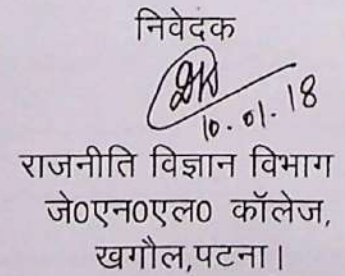 निवेदक
10.01.18
राजनीति विज्ञान विभाग
जे0एन0एल0 कॉलेज,
खगौल,पटना।